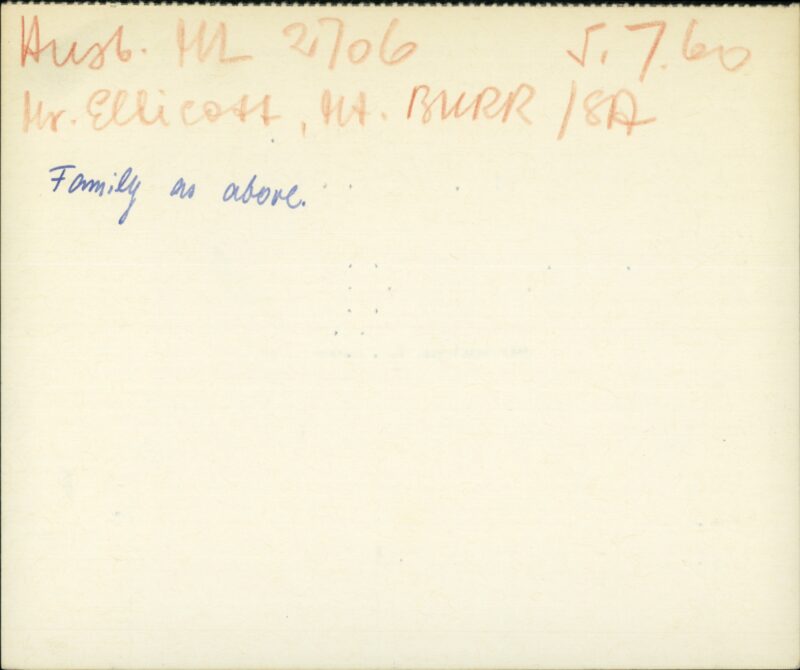 Husb. ML 2706 5.7.60
Mr. Ellicott, Mt. BURR /SA
Family as above.